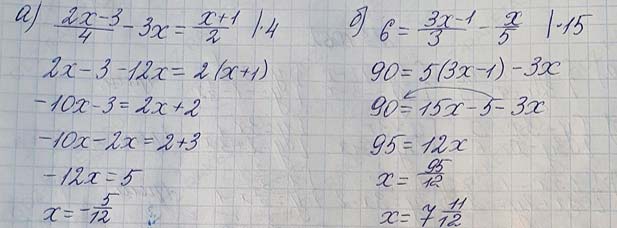 а) (2x-3)/4 - 3x = (x+1)/2 |·4
2x-3-12x = 2(x+1)
-10x-3 = 2x+2
-10x-2x = 2+3
-12x = 5
x = -5/12
б) 6 = (3x-1)/3 - x/5 |·15
90 = 5(3x-1) - 3x
90 = 15x-5-3x
95 = 12x
x = 95/12
x = 7 11/12